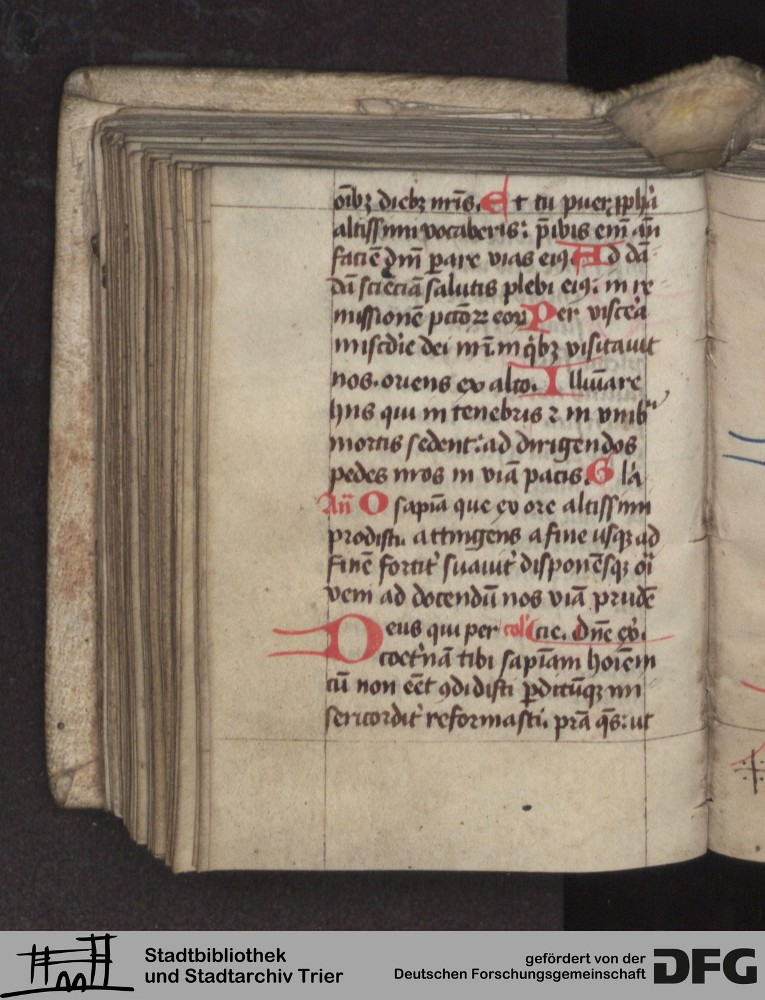 oībꝫ diebꝫ nr̄is. Et tu puer ꝓph̄a
altissimi vocaberis: p̄ibis em̄ an̄
faciē dm̄ ꝑare vias eiꝰ Ad dā
dā sciēciā salutis plebi eiꝰ: in re
missionē pctōꝝ eoꝝ Per visc̄ea
mis̄cdie dei nr̄i in qͥbꝫ visitauit
nos. oriens ex alto. Illūiare
hiis qui in tenebris ⁊ in vmbͣ
mortis sedent: ad dirigendos
pedes nros in viā pacis. Gla
An̄ O sapīa que ex ore altissimi
prodisti. attingens a fine usqꝫ ad
finē fortit̕ suauit̕ disponēsqꝫ oī
veni ad docendū nos viā prudē
Deus qui per col̕ cie. Dn̄e
coet̕nā tibi sapīam hoīem
cū non eēt ꝯdidisti ꝑditūqꝫ mi
sericordit̕ reformasti. pr̄a qs̄: ut
Stadtbibliothek
und Stadtarchiv Trier
gefördert von der
Deutschen Forschungsgemeinschaft
DFG